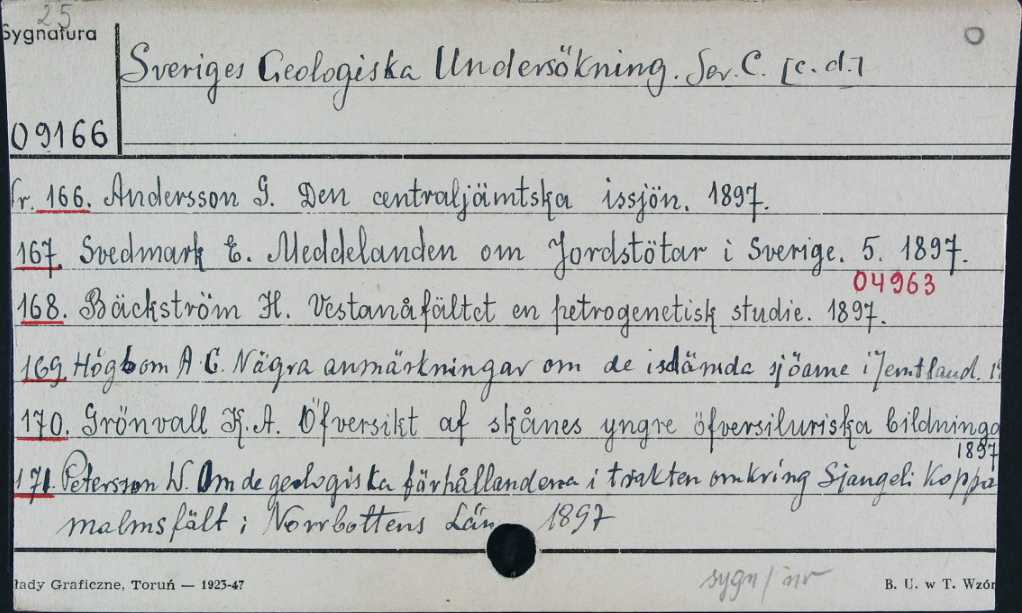 25
Sygnatura
Sveriges Geologiska Undersökning. Ser. C. [c. d.]
09166
r. 166. Andersson G. Den centraljämtska issjön. 1897.
167. Svedmark E. Meddelanden om Jordstötar i Sverige. 5. 1897.
04963
168. Bäckström H. Vestanåfältet en petrogenetisk studie. 1897.
169. Högbom A. G. Några anmärkningar om de isdämda sjöarne i Jemtland. 1
170. Grönvall K. A. Öfversikt af skånes yngre öfversiluriska bildninga
1897
171. Petersson W. Om de geologiska förhållandena i trakten omkring Sjangeli Koppa
malmsfält i Norrbottens Län 1897
sygn/inr
łady Graficzne, Toruń — 1923-47
B. U. w T. Wzór